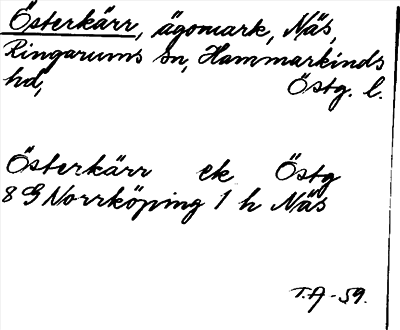 Österkärr, ägomark, Näs,
Ringarums sn, Hammarkinds
hd, Östg. l.
Österkärr ek Östg
8 G Norrköping 1 h Näs
T.A. -59.